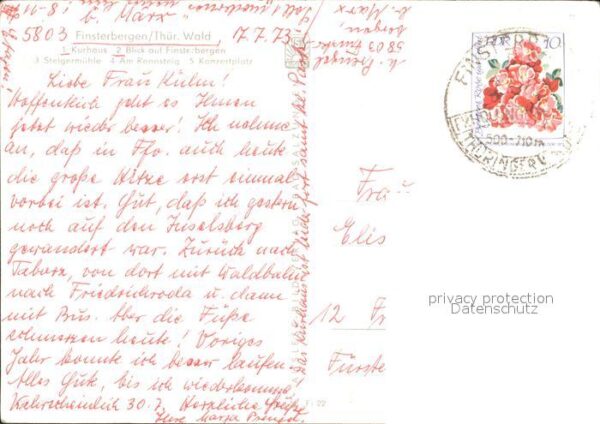 b. Marx
5803 Finsterbergen/Thür. Wald, 17.7.73
1 Kurhaus 2 Blick auf Finsterbergen
3 Steigermühle 4 Am Rennsteig 5 Konzertplatz
Liebe Frau Kulm!
Hoffentlich geht es Ihnen
jetzt wieder besser! Ich nehme
an, daß in Ffo. auch heute
die große Hitze erst einmal
vorbei ist. Gut, daß ich gestern
noch auf den Inselsberg
gewandert war. Zurück nach
Tabarz, von dort mit Waldbahn
nach Friedrichroda u. dann
mit Bus. Aber die Füße
schmerzen heute! Voriges
Jahr konnte ich besser laufen.
Alles Gute, bis ich wiederkomme
Wahrscheinlich 30.7. Herzliche Grüße
Ihre
Das Kurhaus ist
5803
b. Marx
DDR 10
500-710 m
Frau
Elis
12 Fr
Fürste
privacy protection
Datenschutz